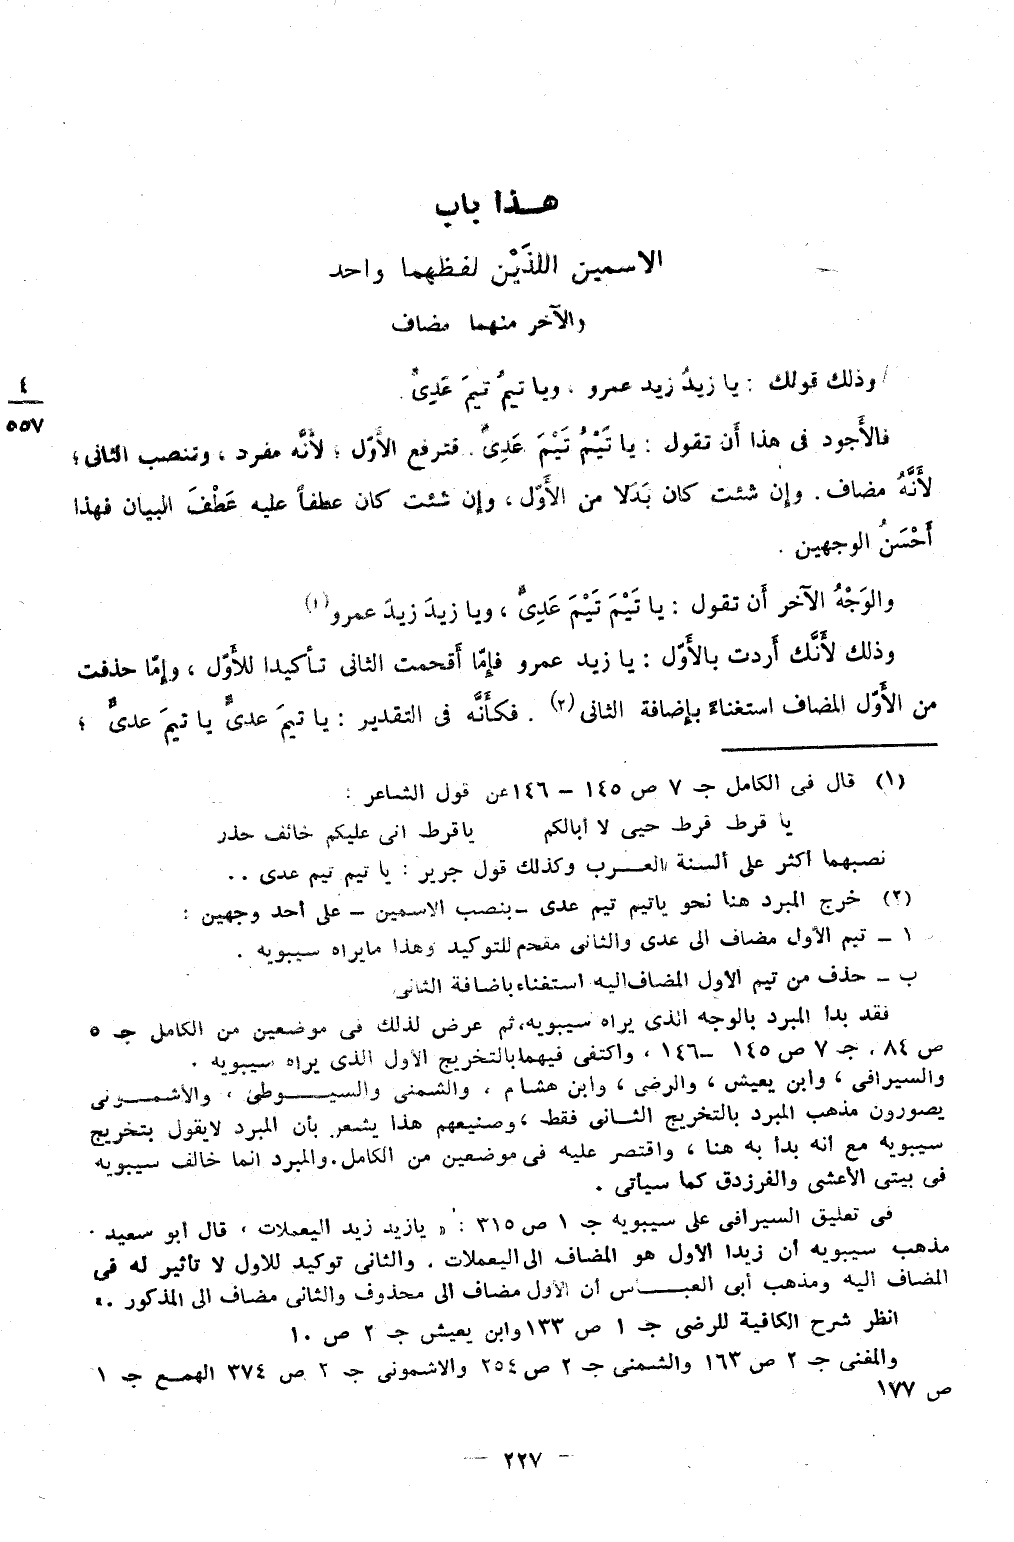 هـذا باب
الاسمين اللذَيْن لفظهما واحد
والآخر منهما مضاف
/ وذلك قولك : يا زيدُ زيد عمرو . ويا تيمُ تيمَ عَدِىٍّ .
٤
٥٥٧
فالأَجود فى هذا أَن تقول : يا تَيْمُ تَيْمَ عَدِىٍّ . فترفع الأَوّل ؛ لأَنَّه مفرد ، وتنصب الثانى ؛
لأَنَّهُ مضاف . وإن شئت كان بَدَلا من الأَوّل ، وإن شئت كان عطفاً عليه عَطْفَ البيان فهذا
أَحْسَنُ الوجهين .
والوَجْهُ الآخر أَن تقول : يا تَيْمَ تَيْمَ عَدِىٍّ ، ويا زيدَ زيدَ عمرو (١)
وذلك لأَنَّك أَردت بالأَوّل : يا زيد عمرو فإمّا أَقحمت الثانى تأكيدا للأَوّل ، وإمّا حذفت
من الأَوّل المضاف استغناءً بإضافة الثانى (٢) . فكأَنَّه فى التقدير : يا تيمَ عدىٍّ يا تيمَ عدىٍّ ؛
(١) قال فى الكامل جـ ٧ ص ١٤٥ – ١٤٦ عن قول الشاعر :
يا قرط قرط حيى لا أبالكم ياقرط انى عليكم خائف حذر
نصبهما أكثر على ألسنة العـرب وكذلك قول جرير : يا تيم تيم عدى ..
(٢) خرج المبرد هنا نحو ياتيم تيم عدى – بنصب الاسمين – على أحد وجهين :
١ – تيم الأول مضاف الى عدى والثانى مقحم للتوكيد وهذا مايراه سيبويه .
ب – حذف من تيم الأول المضاف اليه استغناء باضافة الثانى
فقد بدأ المبرد بالوجه الذى يراه سيبويه، ثم عرض لذلك فى موضعين من الكامل جـ ٥
ص ٨٤ ، جـ ٧ ص ١٤٥ – ١٤٦ ، واكتفى فيهما بالتخريج الأول الذى يراه سيبويه .
والسيرافى ، وابن يعيش ، والرضى ، وابن هشام ، والشمنى والسيـوطى ، والأشمـونى
يصورون مذهب المبرد بالتخريج الثـانى فقط ، وصنيعهم هذا يشعر بأن المبرد لايقول بتخريج
سيبويه مع أنه بدأ به هنا ، واقتصر عليه فى موضعين من الكامل. والمبرد انما خالف سيبويه
فى بيتى الأعشى والفرزدق كما سيأتى .
فى تعليق السيرافى على سيبويه جـ ١ ص ٣١٥ : « يازيد زيد اليعملات ، قال أبو سعيد .
مذهب سيبويه أن زيدا الأول هو المضاف الى اليعملات . والثانى توكيد للأول لا تأثير له فى
المضاف اليه ومذهب أبى العبـاس أن الأول مضاف الى محذوف والثانى مضاف الى المذكور .»
انظر شرح الكافية للرضى جـ ١ ص ١٣٣ وابن يعيش جـ ٢ ص ١٠
والمغنى جـ ٢ ص ١٦٣ والشمنى جـ ٢ ص ٢٥٤ والاشمونى جـ ٢ ص ٣٧٤ الهمـع جـ ١
ص ١٧٧
– ٢٢٧ –